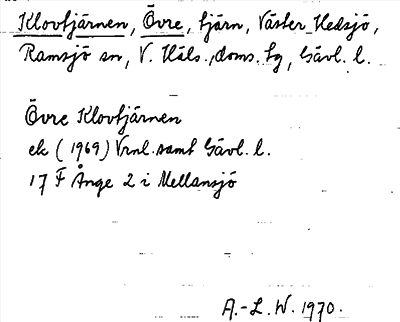 Klovtjärnen, Övre, tjärn, Väster-Hedsjö,
Ramsjö sn, V. Häls. doms. tg, Gävl. l.
Övre Klovtjärnen
ek (1969) Vrnl. samt Gävl. l.
17 F Ånge 2 i Mellansjö
A.-L. W. 1970.